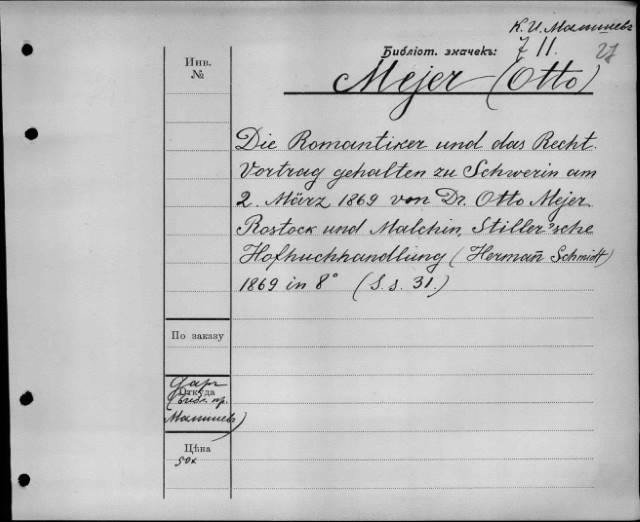 К. И. Малышевъ
Библіот. значекъ: 7 11.
27
Инв.
№
Mejer (Otto)
Die Romantiker und das Recht.
Vortrag gehalten zu Schwerin am
2. März 1869 von Dr. Otto Mejer.
Rostock und Malchin, Stiller'sche
Hofbuchhandlung (Hermañ Schmidt)
1869 in 8° (S. s. 31.)
По заказу
Даръ
Откуда
Малышев)
Цѣна
50к